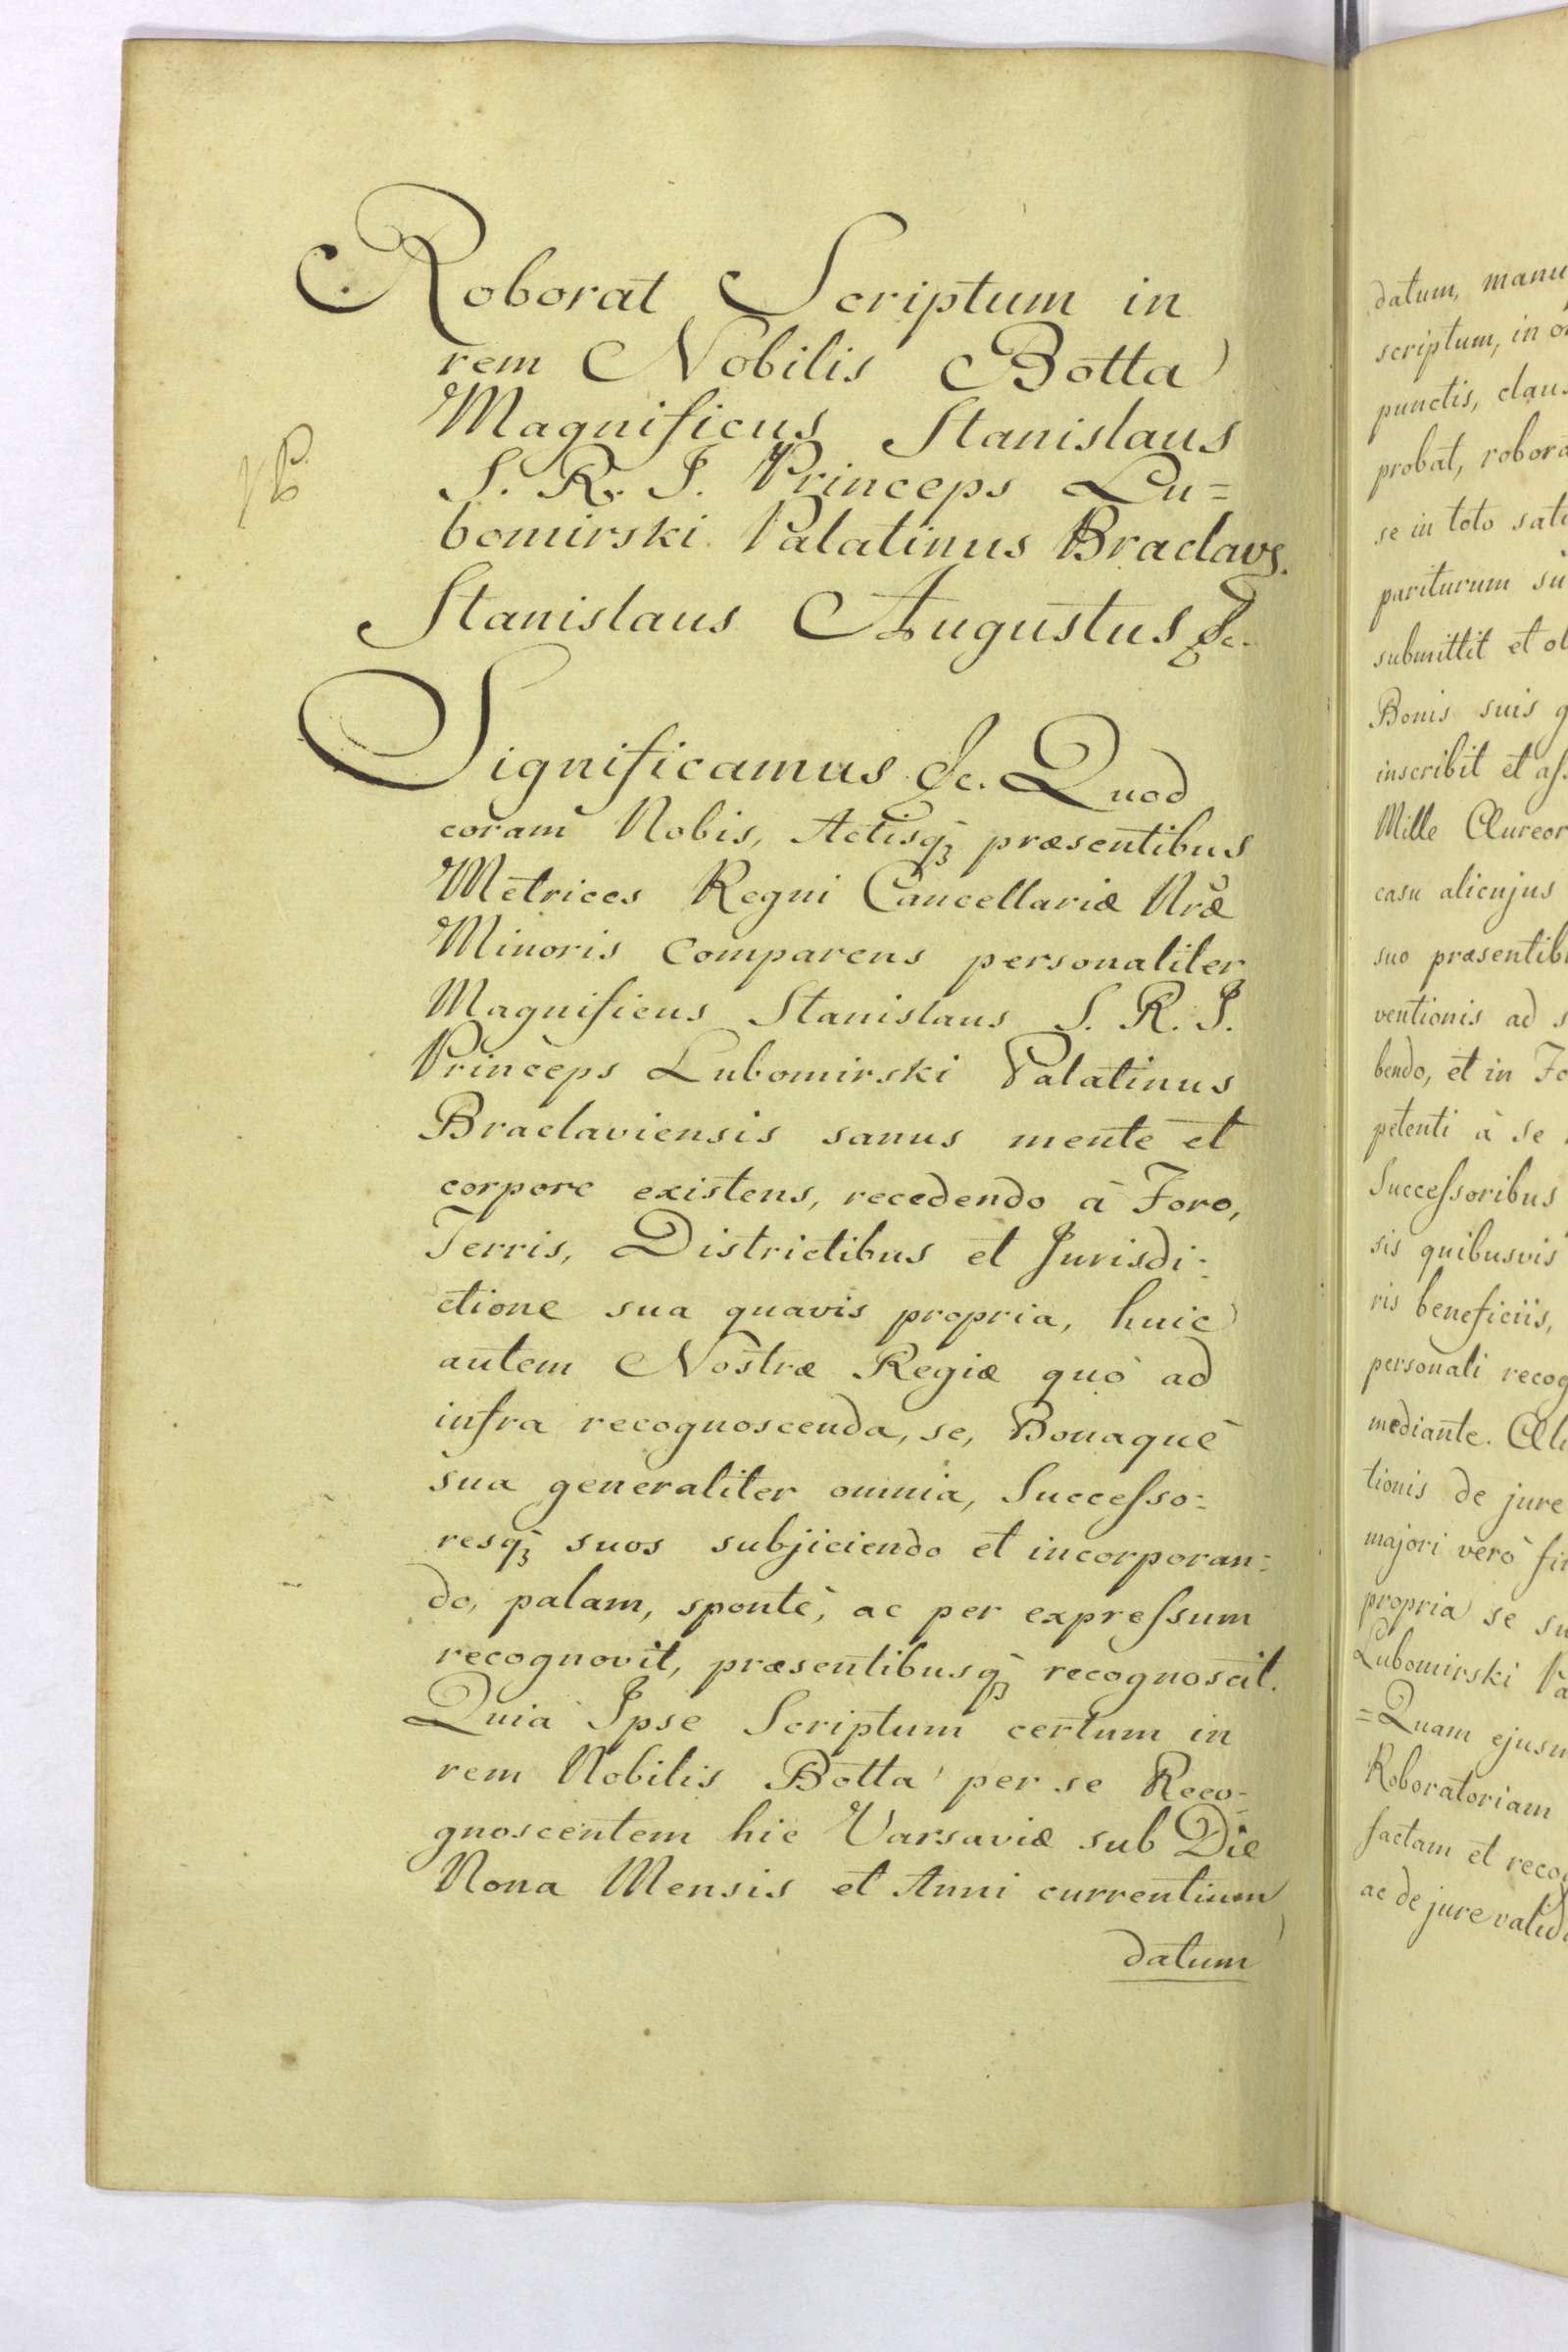 Roborat Scriptum in
rem Nobilis Botta
Magnificus Stanislaus
S. R. I. Princeps Lu=
bomirski Palatinus Braclavs.
Stanislaus Augustus &c.
Significamus &c. Quod
coram Nobis, Actisq; præsentibus
Metrices Regni Cancellariæ Nræ
Minoris Comparens personaliter
Magnificus Stanislaus S. R. I.
Princeps Lubomirski Palatinus
Braclaviensis sanus mente et
corpore existens, recedendo à Foro,
Terris, Districtibus et Jurisdi=
ctione sua quavis propria, huic
autem Nostræ Regiæ quò ad
infra recognoscenda, se, Bonaquè
sua generaliter omnia, Successo=
resq; suos subjiciendo et incorporan=
do, palam, spontè, ac per expressum
recognovit, præsentibusq; recognoscit.
Quia Ipse Scriptum certum in
rem Nobilis Botta per se Reco=
gnoscentem hic Varsaviæ sub Die
Nona Mensis et Anni currentium
datum
datum, manu
scriptum, in
punctis, claus
probat, robora
se in toto sati
pariturum
submittit et
Bonis suis
inscribit et
Mille Aureor
casu alicujus
suo præsentib
ventionis ad
bendo, et in Fo
petenti à se
Successoribus
sis quibusvis
ris beneficiis,
personali recog
mediante.
tionis de jure
majori verò
propria se
Lubomirski
=Quam ejusm
Roboratoriam
factam et reco
ac de jure valid